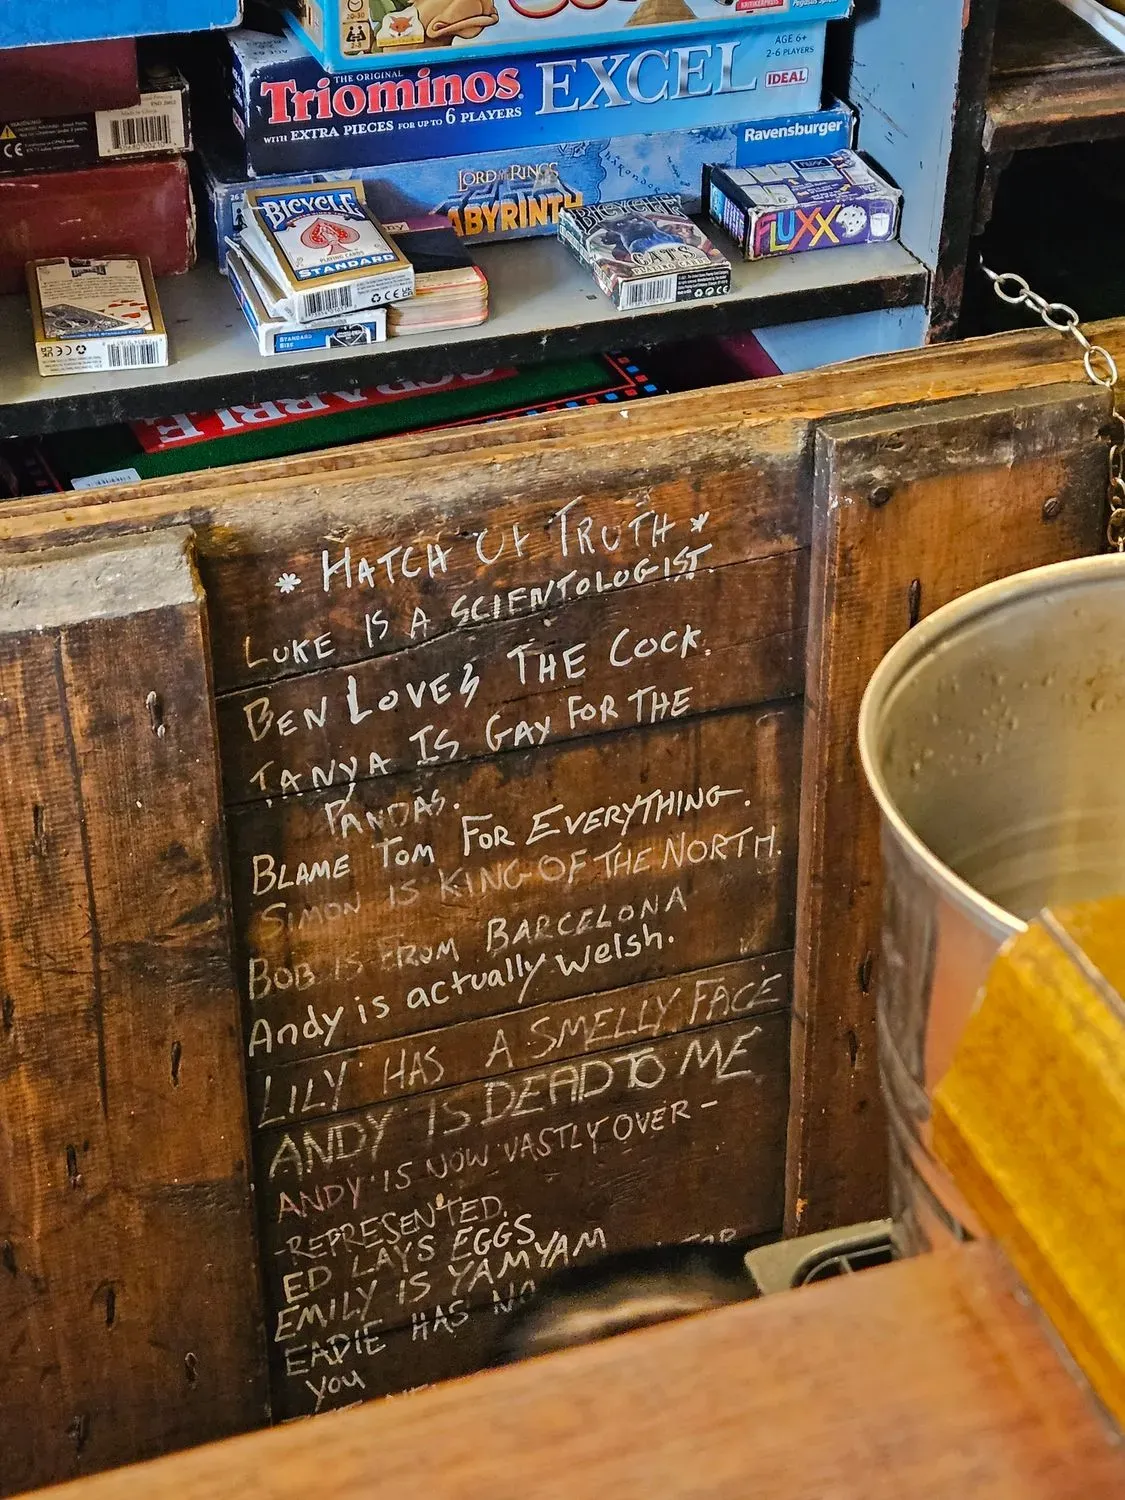 AGE 6+
2-6 PLAYERS
IDEAL
THE ORIGINAL
Triominos EXCEL
WITH EXTRA PIECES FOR UP TO 6 PLAYERS
Ravensburger
LORD OF THE RINGS
LABYRINTH
BICYCLE
STANDARD
PLAYING CARDS
STANDARD
SIZE
BICYCLE
CATS
FLUXX
FLUXX
SCRABBLE
* HATCH OF TRUTH *
LUKE IS A SCIENTOLOGIST.
BEN LOVES THE COCK.
TANYA IS GAY FOR THE
PANDAS.
BLAME TOM FOR EVERYTHING.
SIMON IS KING OF THE NORTH.
BOB IS FROM BARCELONA
Andy is actually Welsh.
LILY HAS A SMELLY FACE
ANDY IS DEAD TO ME
ANDY IS NOW VASTLY OVER-
-REPRESENTED.
ED LAYS EGGS
EMILY IS YAMYAM
EADIE HAS NO
FOR
YOU